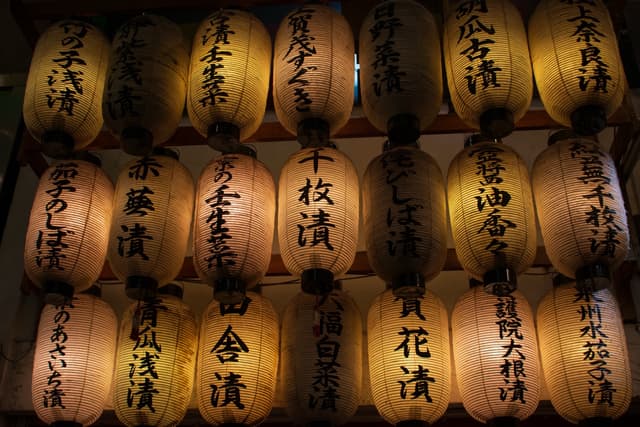 竹の子浅漬
浅漬
漬壬生菜
賀茂すぐき
日野菜漬
胡瓜古漬
最上奈良漬
茄子のしば漬
赤蕪漬
の壬生菜
千枚漬
びしば漬
醤油香々
紅蕪千枚漬
のあさいち漬
青瓜浅漬
田舎漬
大福白菜漬
花漬
聖護院大根漬
泉州水茄子漬